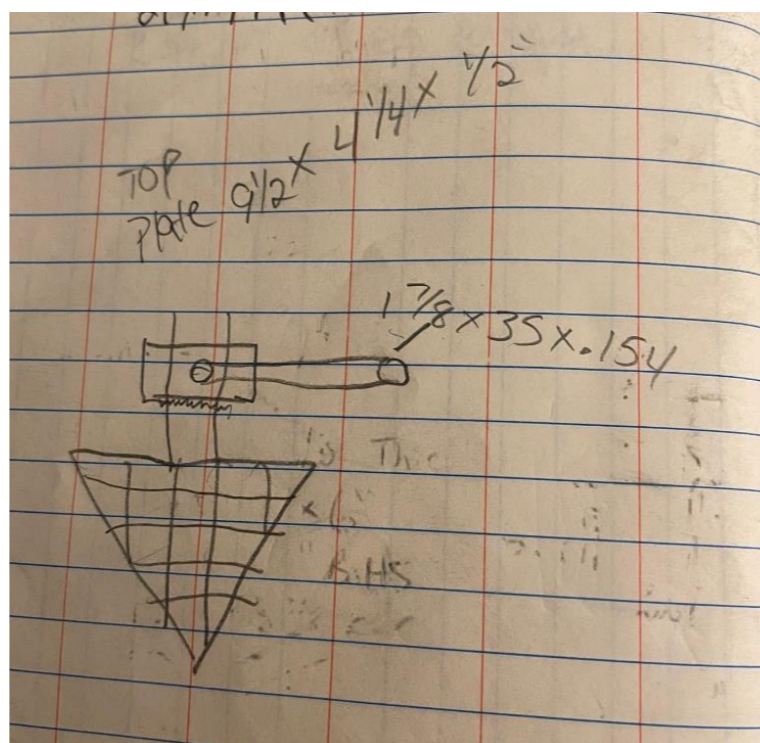 TOP
Plate 9 1/2 x 4 1/4 x 1/2"
1 7/8 x 35 x .154